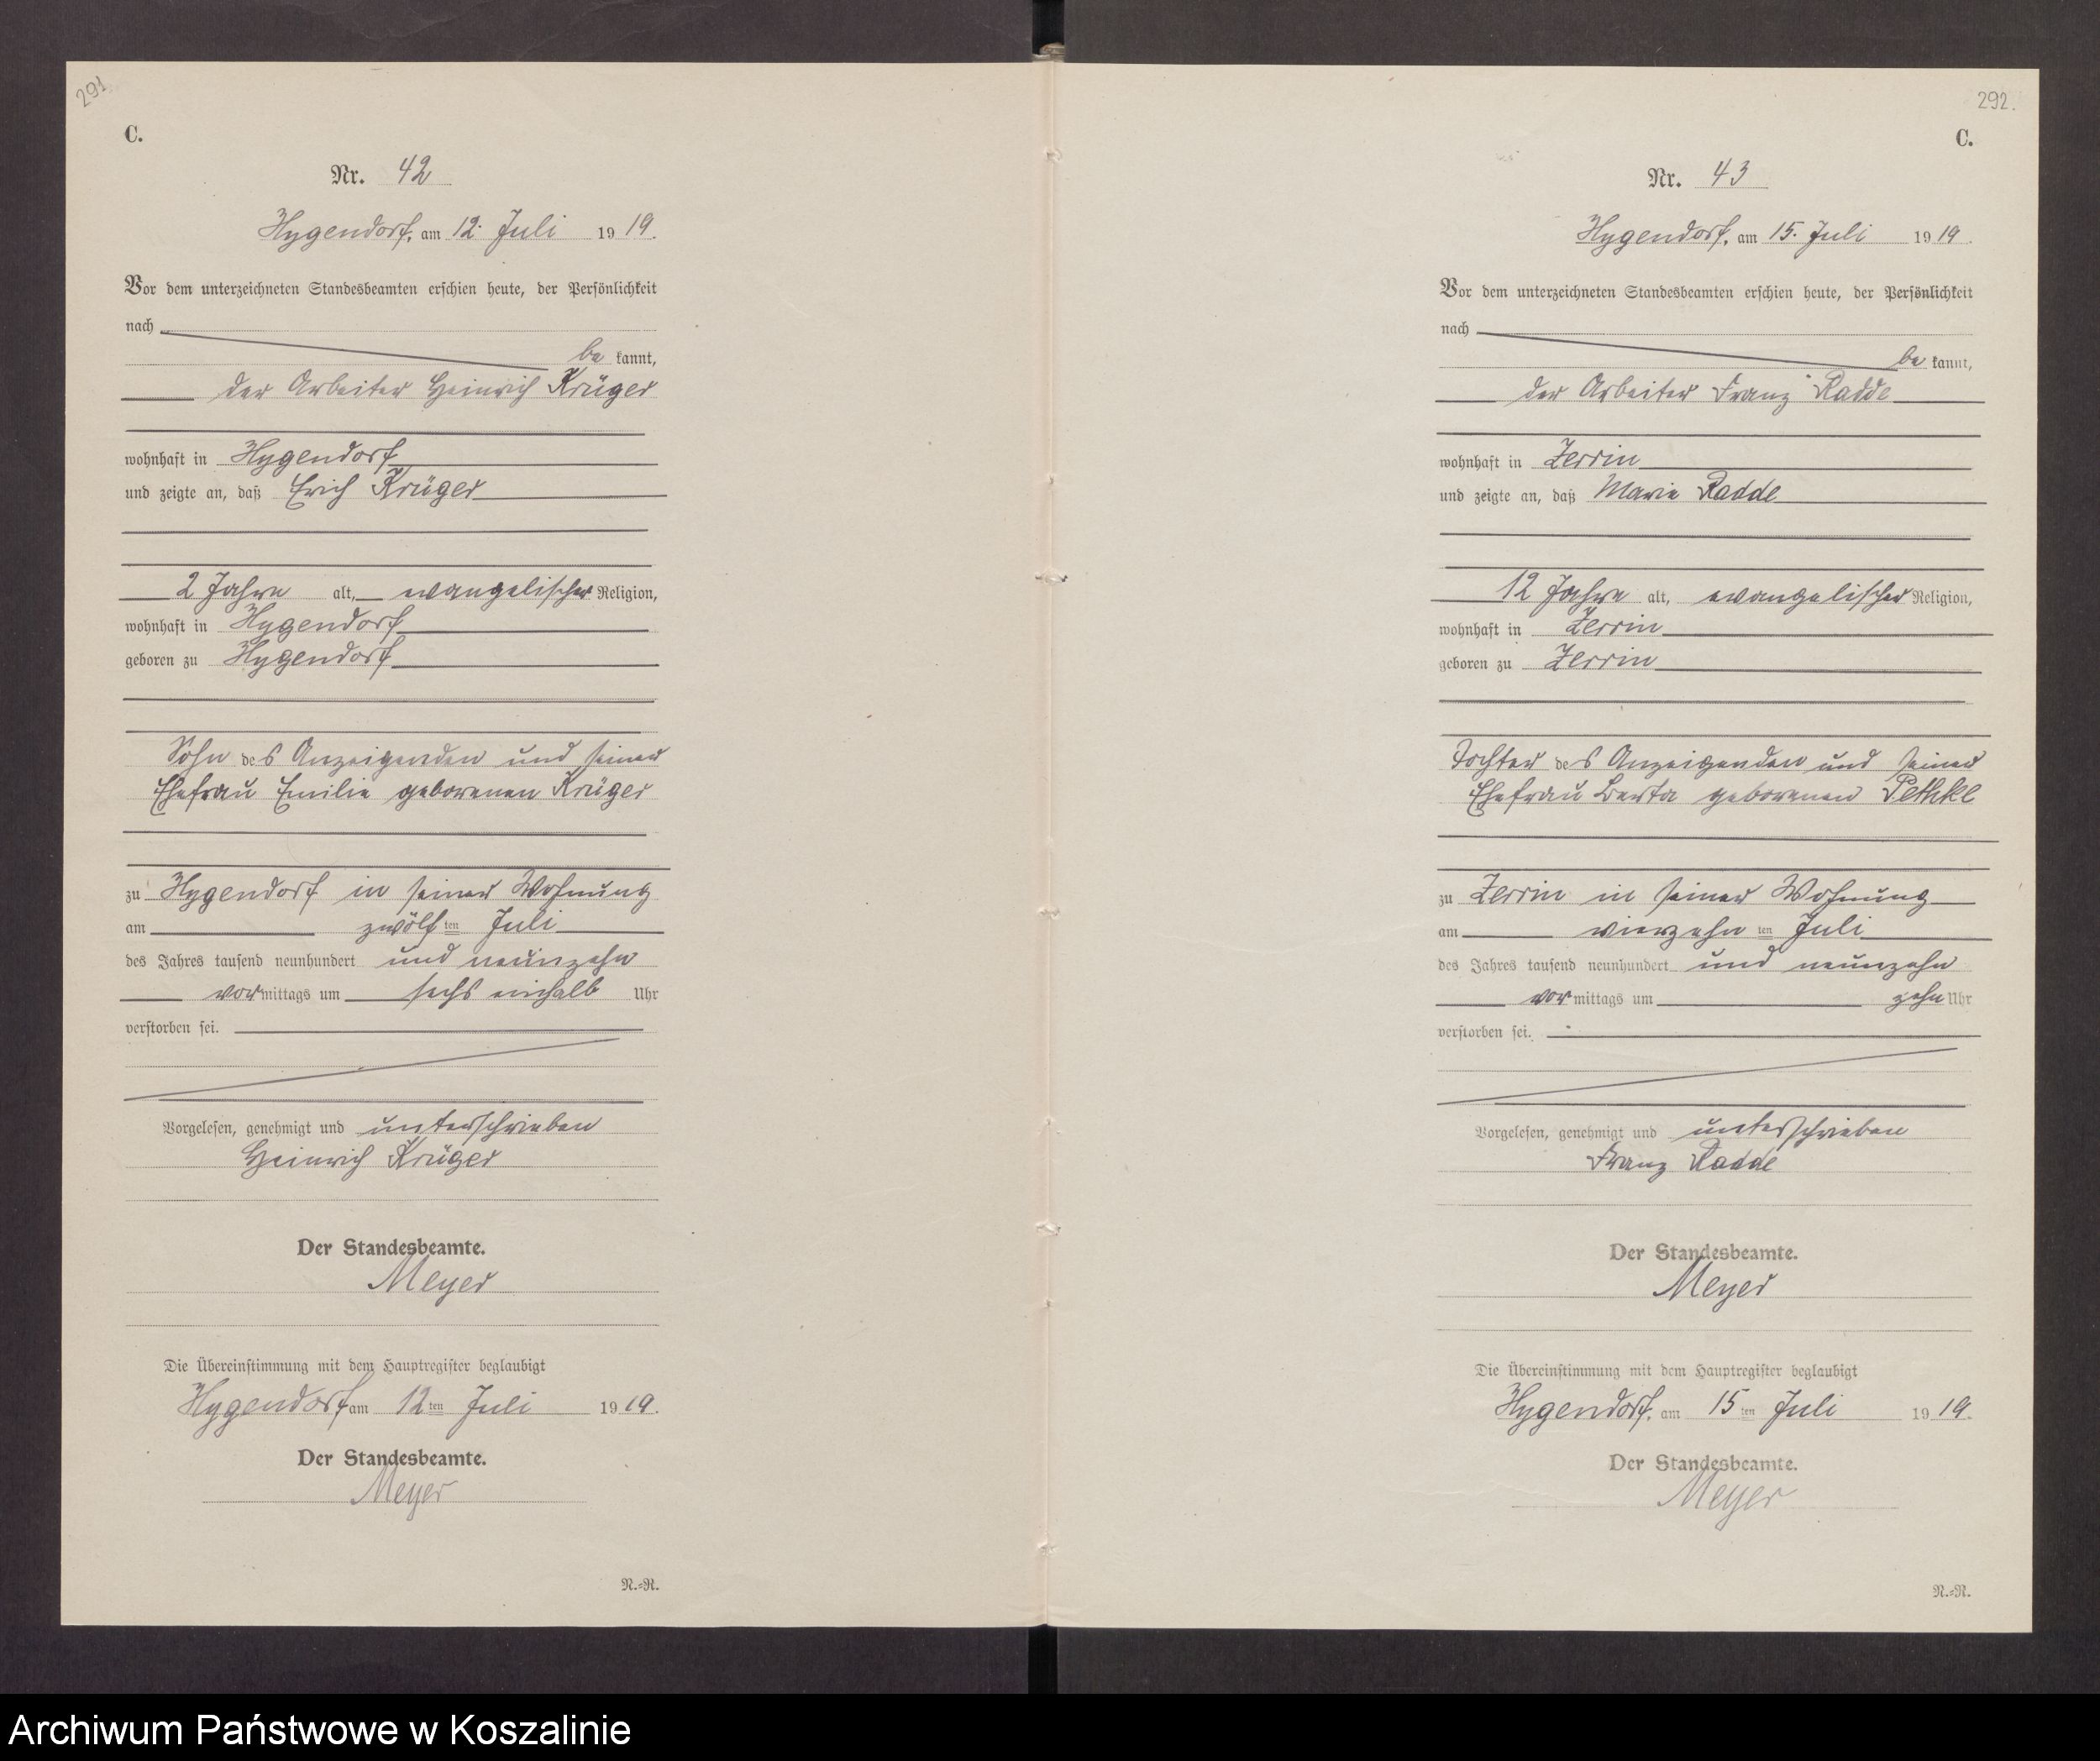 291
C.
Nr. 42
Hygendorf, am 12. Juli 1919.
Vor dem unterzeichneten Standesbeamten erschien heute, der Persönlichkeit
nach
be kannt,
der Arbeiter Heinrich Krüger
wohnhaft in Hygendorf
und zeigte an, daß Erich Krüger
2 Jahre alt, evangelischer Religion,
wohnhaft in Hygendorf
geboren zu Hygendorf
Sohn des Anzeigenden und seiner
Ehefrau Emilie geborenen Krüger
zu Hygendorf in seiner Wohnung
am zwölf ten Juli
des Jahres tausend neunhundert und neunzehn
vormittags um sechs einhalb Uhr
verstorben sei.
Vorgelesen, genehmigt und unterschrieben
Heinrich Krüger
Der Standesbeamte.
Meyer
Die Übereinstimmung mit dem Hauptregister beglaubigt
Hygendorf am 12ten Juli 1919.
Der Standesbeamte.
Meyer
N.=N.
292.
C.
Nr. 43
Hygendorf, am 15. Juli 1919.
Vor dem unterzeichneten Standesbeamten erschien heute, der Persönlichkeit
nach
be kannt,
der Arbeiter Franz Radde
wohnhaft in Zerrin
und zeigte an, daß Marie Radde
12 Jahre alt, evangelischer Religion,
wohnhaft in Zerrin
geboren zu Zerrin
Tochter des Anzeigenden und seiner
Ehefrau Berta geborenen Pethke
zu Zerrin in seiner Wohnung
am vierzehn ten Juli
des Jahres tausend neunhundert und neunzehn
vormittags um zehn Uhr
verstorben sei.
Vorgelesen, genehmigt und unterschrieben
Franz Radde
Der Standesbeamte.
Meyer
Die Übereinstimmung mit dem Hauptregister beglaubigt
Hygendorf, am 15ten Juli 1919.
Der Standesbeamte.
Meyer
N.=N.
Archiwum Państwowe w Koszalinie